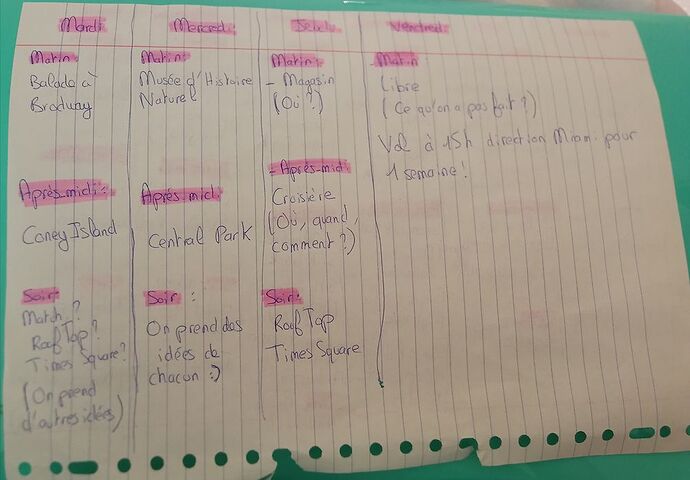 Mardi
Matin:
Balade à
Brodway
Après-midi:
Coney Island
Soir:
Match ?
Roof Top ?
Times Square ?
(On prend
d'autres idées)
Mercredi
Matin:
Musée d'Histoire
Naturel
Après midi
Central Park
Soir :
On prend des
idées de
chacun :)
Jeudi
Matin:
- Magasin
(Où ?)
- Après-midi
Croisière
(Où, quand,
comment ?)
Soir:
Roof Top
Times Square
Vendredi
Matin:
Libre
(Ce qu'on a pas fait ?)
Vol à 15h direction Miami pour
1 semaine !